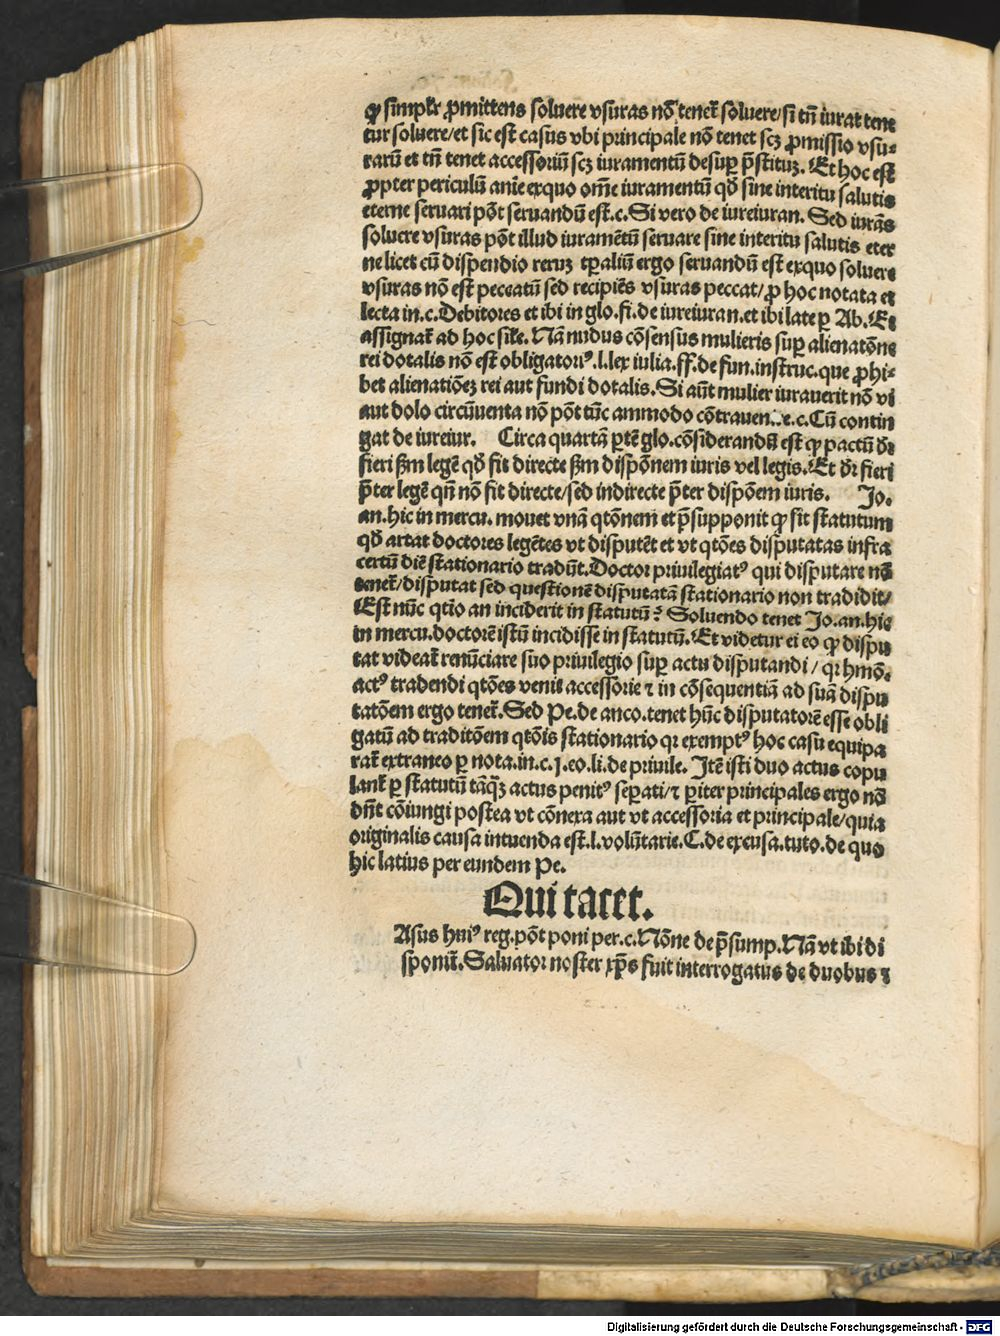 ꝙ simplr̄ ꝓmittens soluere vsuras nō tenet̄ soluere/si tn̄ iurat tene
tur soluere/et sic est casus vbi principale nō tenet scꝫ ꝓmissio vsu-
rarū et tn̄ tenet accessoriū scꝫ iuramentū desuꝑ p̄stituꝫ. Et hoc est
ꝓpter periculū anīe exquo om̄e iuramentū qd̄ sine interitu salutis
eterne seruari pōt seruandū est.c. Si vero de iureiuran. Sed iurās
soluere vsuras pōt illud iuramētū seruare sine interitu salutis eter
ne licet cū dispendio reruꝫ tp̄aliū ergo seruandū est exquo soluere
vsuras nō est peccatū sed recipiēs vsuras peccat/ꝓ hoc notata et
lecta in.c. Debitores et ibi in glo.fi.de iureiuran.et ibi late ꝑ Ab. Et
assignat̄ ad hoc sil̄e. Nā nudus cōsensus mulieris suꝑ alienatōne
rei dotalis nō est obligatoriꝰ.l.lex iulia.ff.de fun.instruc.que ꝓhi-
bet alienatiōeꝫ rei aut fundi dotalis. Si aūt mulier iurauerit nō vi
aut dolo circūuenta nō pōt tūc ammodo cōtrauen..e.c. Cū contin
gat de iureiur. Circa quartā ꝑtē glo.cōsiderandū est ꝙ pactū dr̄
fieri ẜm legē qd̄ fit directe ẜm dispōnem iuris vel legis. Et dr̄ fieri
p̄ter legē qn̄ nō fit directe/sed indirecte p̄ter dispōem iuris. Jo.
an.hic in mercu. mouet vnā qtōnem et p̄supponit ꝙ sit statutum
qd̄ artat doctores legētes vt disputēt et vt qtōes disputatas infra
certū diē stationario tradūt. Doctor priuilegiatꝰ qui disputare nō
tenet̄/disputat sed questionē disputatā stationario non tradidit/
Est nūc qtio an inciderit in statutū? Soluendo tenet Jo.an.hic
in mercu.doctorē istū incidisse in statutū. Et videtur ei eo ꝙ dispu
tat videat̄ renūciare suo priuilegio suꝑ actu disputandi / qr hmōi.
actꝰ tradendi qtōes venit accessorie ⁊ in cōsequentiā ad suā dispu
tatōem ergo tenet̄. Sed Pe.de anco.tenet hūc disputatorē esse obli
gatū ad traditōem qtōis stationario qr exemptꝰ hoc casu equipa
rat̄ extraneo ꝑ nota.in.c.j.eo.li.de priuile. Itē isti duo actus copu
lant̄ ꝑ statutū tāqꝫ̄ actus penitꝰ seꝑati/⁊ ꝑiter principales ergo nō
dn̄t cōiungi postea vt cōnexa aut vt accessoria et principale/quia
originalis causa intuenda est.l.volūtarie.C.de excusa.tuto.de quo
hic latius per eundem Pe.
Qui tacet.
Asus huiꝰ reg.pōt poni per.c. Nōne de p̄sump. Nā vt ibi di
sponit̄. Saluator noster xp̄s fuit interrogatus de duobus ⁊
Digitalisierung gefördert durch die Deutsche Forschungsgemeinschaft - DFG